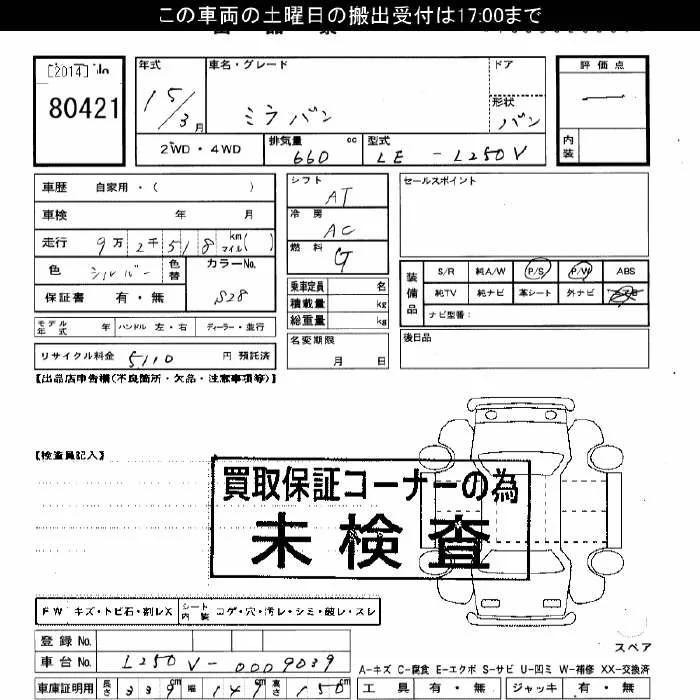 この車両の土曜日の搬出受付は17:00まで
[2014]
80421
年式
15/3月
車名・グレード
ミラバン
ドア
形状
バン
評価点
—
内装
2WD・4WD
排気量 cc
660
型式
LE - L250V
車歴 自家用・( )
車検 年 月
走行 9万 2千 518 km マイル ( )
色 シルバー 色替
カラーNo.
S28
保証書 有・無
モデル年式 年 ハンドル 左・右 ディーラー・並行
リサイクル料金 5110 円 預託済
シフト
AT
冷房
AC
燃料
G
乗車定員 名
積載量 kg
総重量 kg
名変期限
月 日
セールスポイント
装備品
S/R 純A/W P/S P/W ABS
純TV 純ナビ 革シート 外ナビ
ナビ型番:
後日品
【出品店申告欄(不良箇所・欠品・注意事項等)】
【検査員記入】
買取保証コーナーの為
未検査
FW キズ・トビ石・割レX
シート内装 コゲ・穴・汚レ・シミ・破レ・スレ
登録No.
車台No. L250V-0009039
車庫証明用 長さ 339cm 幅 149cm 高さ 150cm
スペア
A-キズ C-腐食 E-エクボ S-サビ U-凹ミ W-補修 XX-交換済
工具 有・無 ジャッキ 有・無